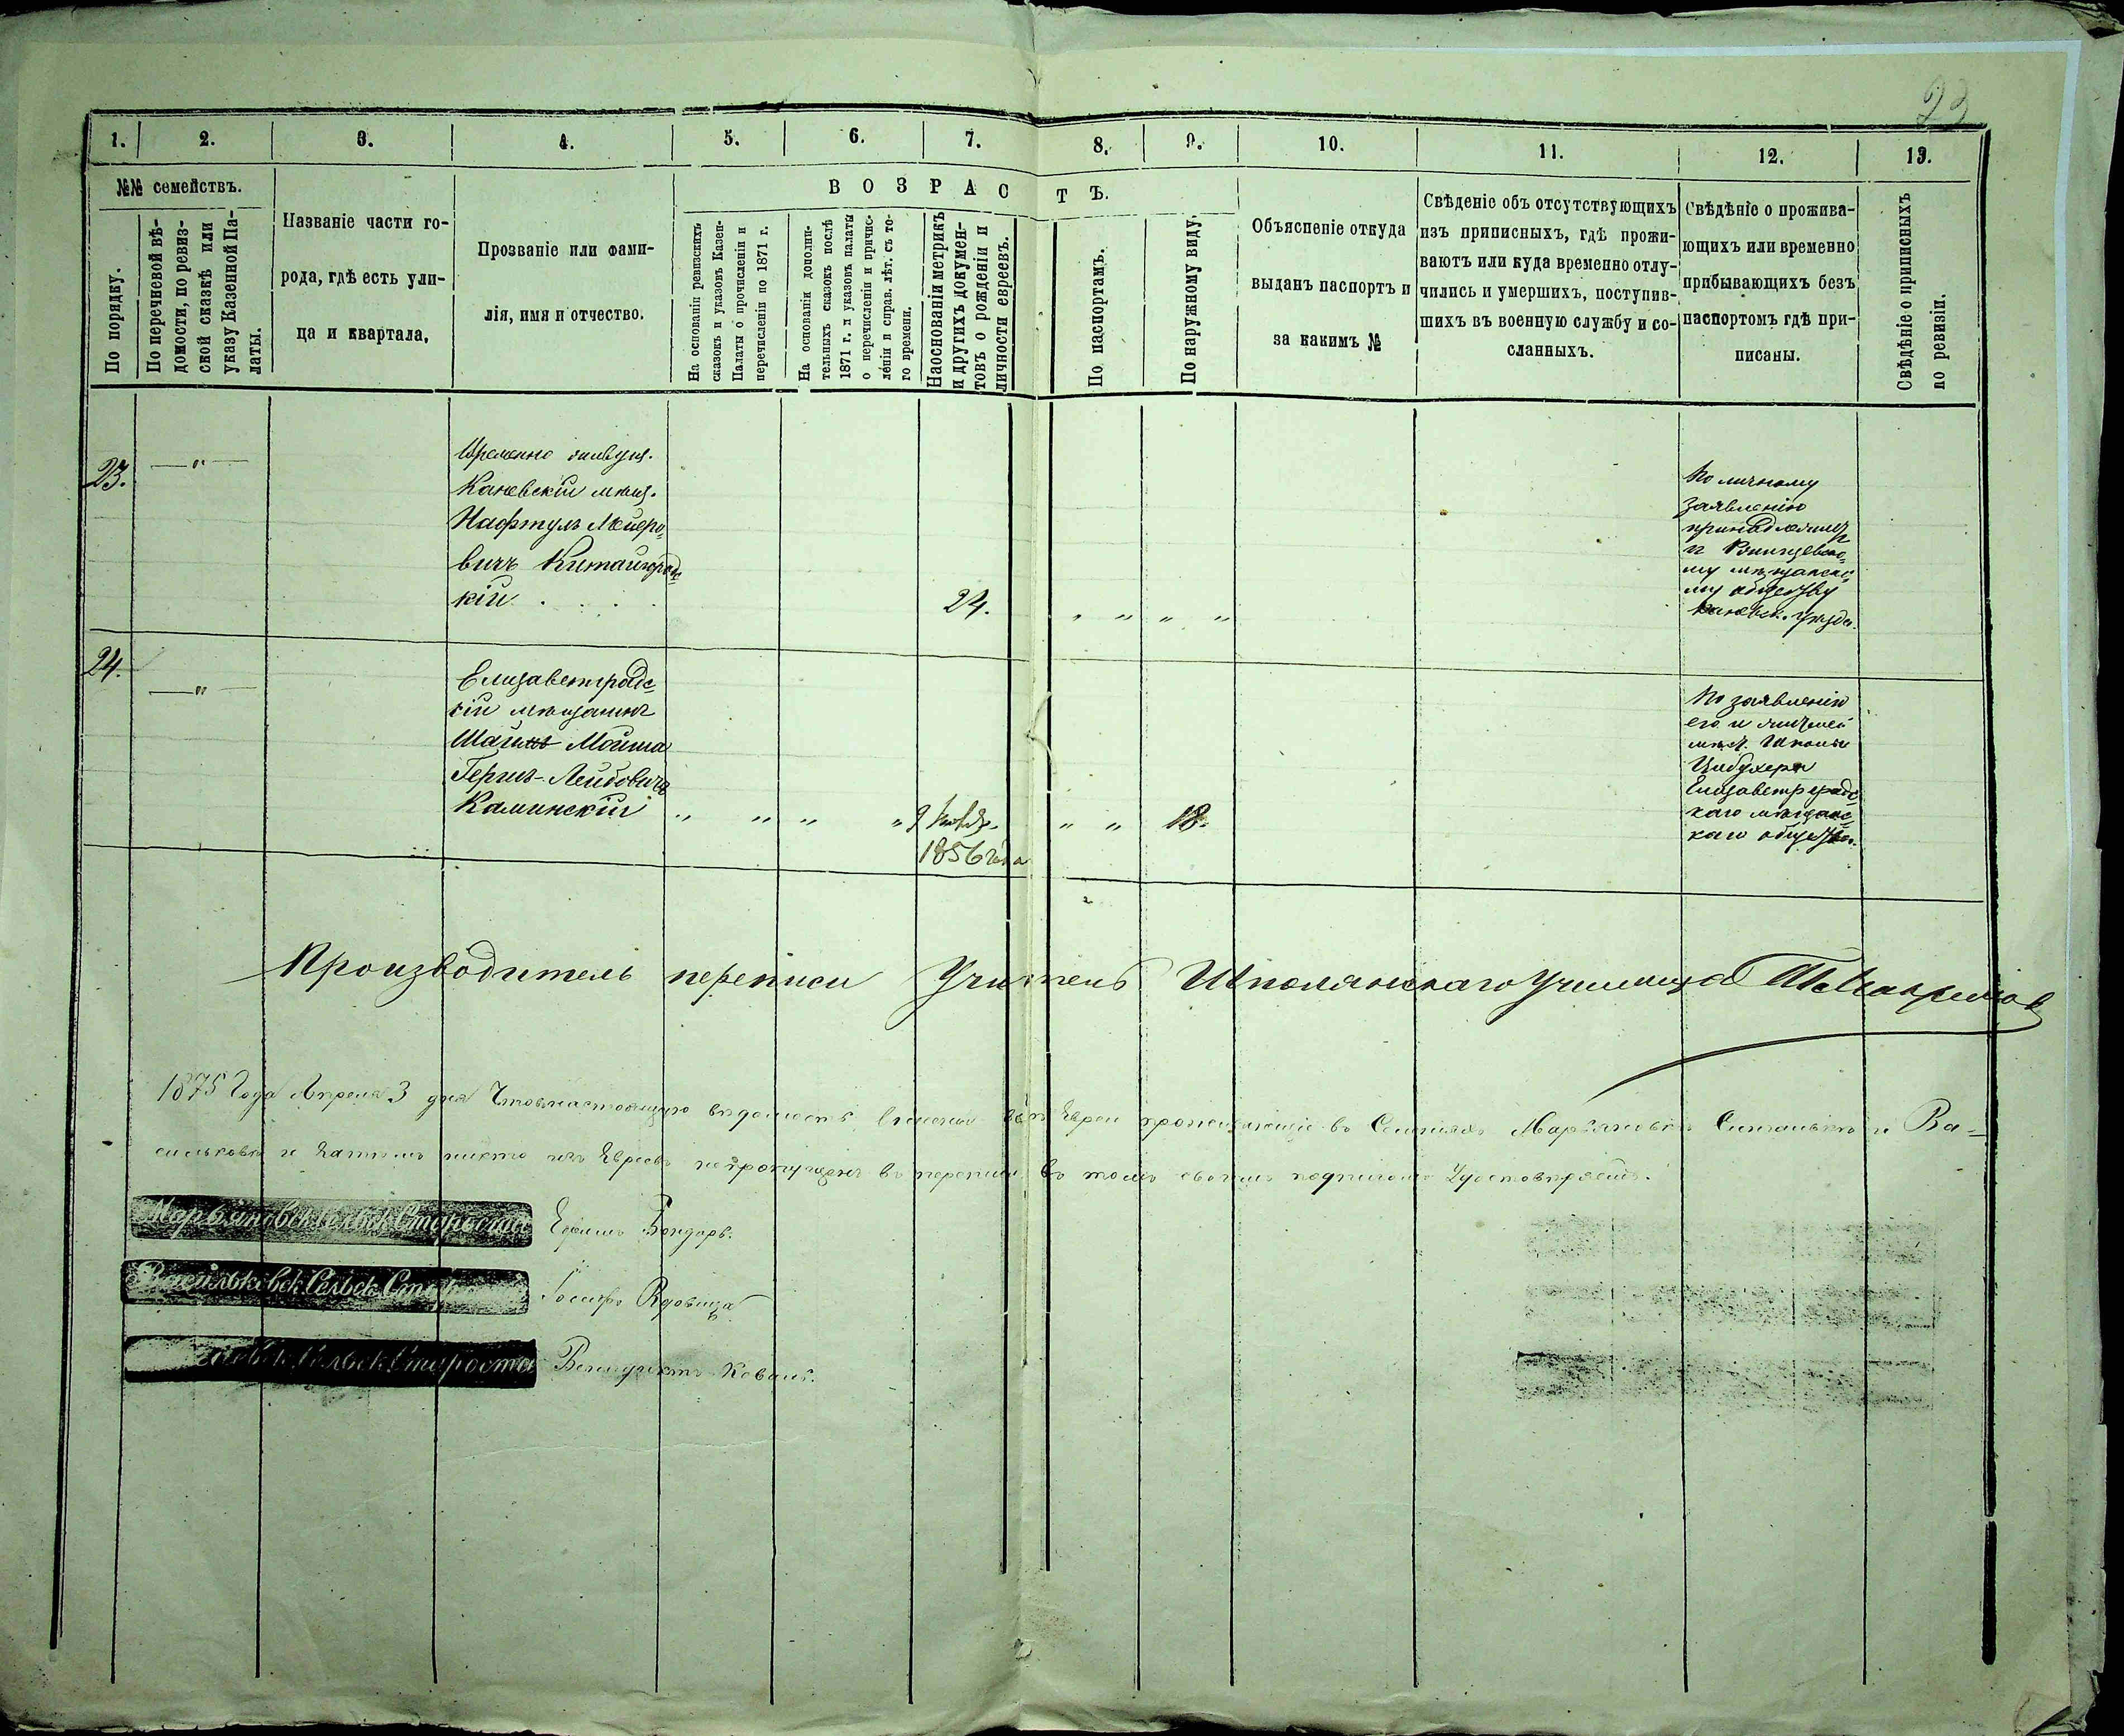 23
1. 2. 3. 4. 5. 6. 7. 8. 9. 10. 11. 12. 13.
№№ семействъ.
По порядку.
По перечневой вѣ-
домости, по ревиз-
ской сказкѣ или
указу Казенной Па-
латы.
Названіе части го-
рода, гдѣ есть ули-
ца и квартала,
Прозваніе или фами-
лія, имя и отчество.
ВОЗРАСТЪ.
На основаніи ревизскихъ
сказокъ и указовъ Казен-
Палаты о прочисленіи и
перечисленіи по 1871 г.
На основаніи дополни-
тельныхъ сказокъ послѣ
1871 г. и указовъ палаты
о перечисленіи и причис-
леніи и справ. лѣт. съ то-
го времени.
На основаніи метрикъ
и другихъ докумен-
товъ о рожденіи и
личности евреевъ.
По паспортамъ.
По наружному виду.
Объясненіе откуда
выданъ паспортъ и
за какимъ №
Свѣденіе объ отсутствующихъ
изъ приписныхъ, гдѣ прожи-
ваютъ или куда временно отлу-
чились и умершихъ, поступив-
шихъ въ военную службу и со-
сланныхъ.
Свѣдѣніе о прожива-
ющихъ или временно
прибывающихъ безъ
паспортомъ гдѣ при-
писаны.
Свѣдѣніе о приписныхъ
по ревизіи.
23. — " —
Временно
Каневскій мѣщ.
Нафтуль Мейеро-
вичъ Китайгородс-
кій . . . .
24.
" " " "
По личному
заявленію
му мѣщанско-
му обществу
Каневск. уѣзда.
24. — " —
Елизаветградс-
кій мѣщанинъ
Мойша
Герш-Лейбовичъ
Каминскій
" " " "
1856 года
" "
18.
По заявленію
его и
мѣст. Шполы
Елизаветградс-
каго мѣщанс-
каго общества.
Производитель переписи Учитель Шполянскаго Училища
1875 Года Апреля 3 дня Что въ настоящую вѣдомость внесены всѣ Евреи проживающіе въ Селеніяхъ Марьяновкѣ и Ва-
сильковѣ и затѣмъ никто изъ Евреевъ не пропущенъ въ переписи въ томъ своимъ подписомъ Удостовѣряемъ.
Марьяновск Сельск Староста Ефимъ Бондарь.
Васильковск Сельск Вдовица
Сельск Староста Венедиктъ Коваль.